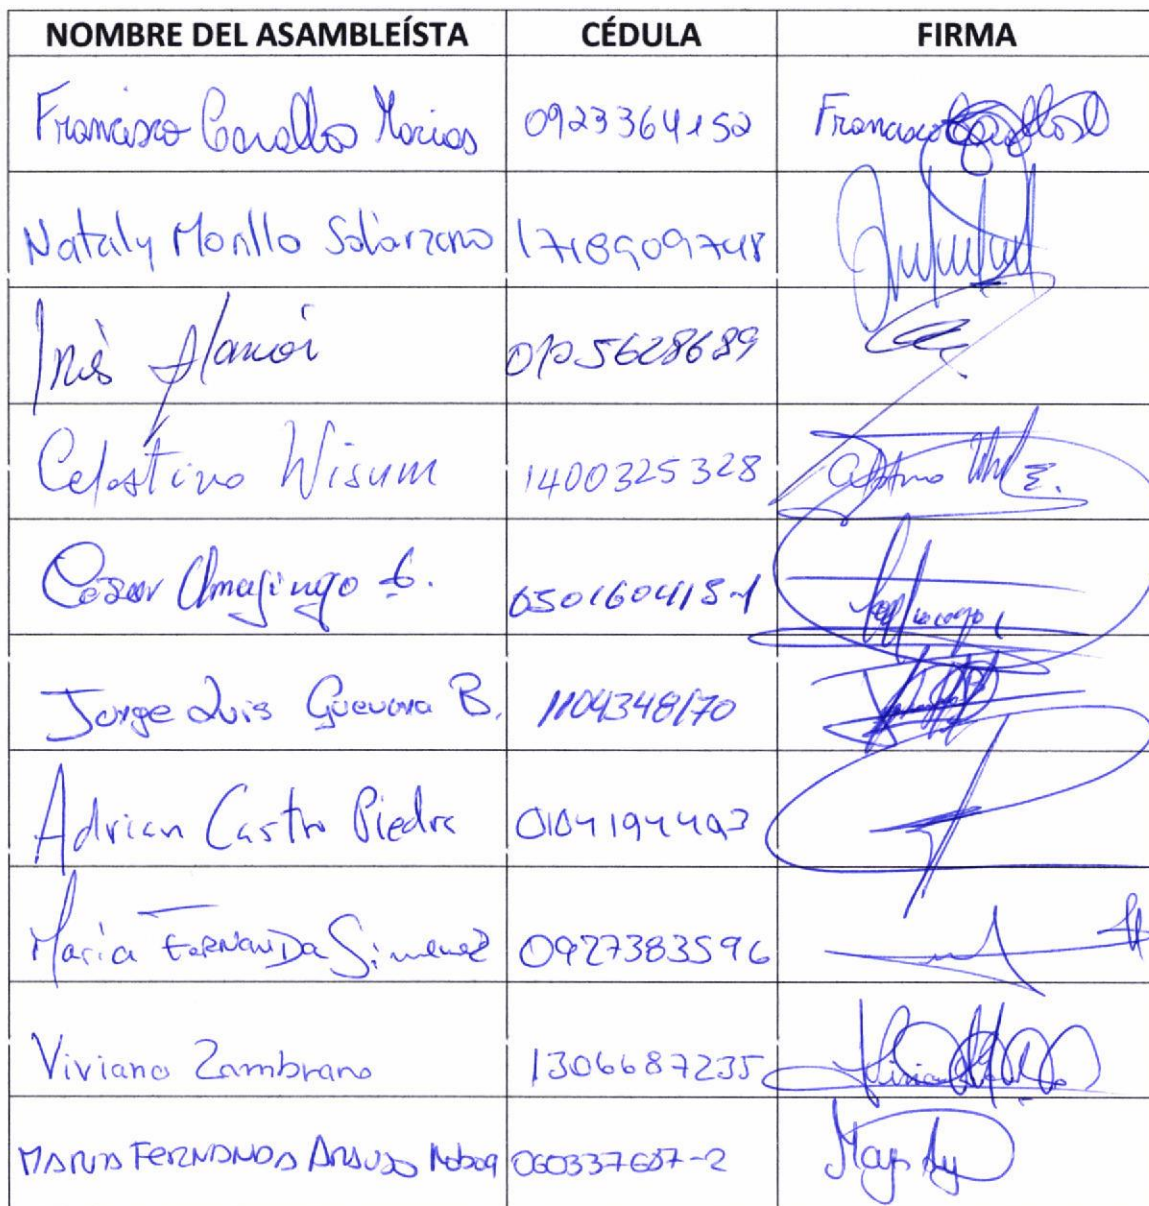 NOMBRE DEL ASAMBLEÍSTA CÉDULA FIRMA
Francisco Cevallos Macias 0923364152 Francisco Cevallos
Nataly Morillo Solórzano
Inés Alarcón 0925628689
Celestino Wisum 1400325328
César Umajinga G. 050160415-1
Jorge Luis Guevara B. 1104348170
Adrian Castro Piedra 0104194493
María FERNANDA Jimenez 0927383596
Viviana Zambrano 1306687235
MARIA FERNANDA ARAUJO Noboa 060337637-2